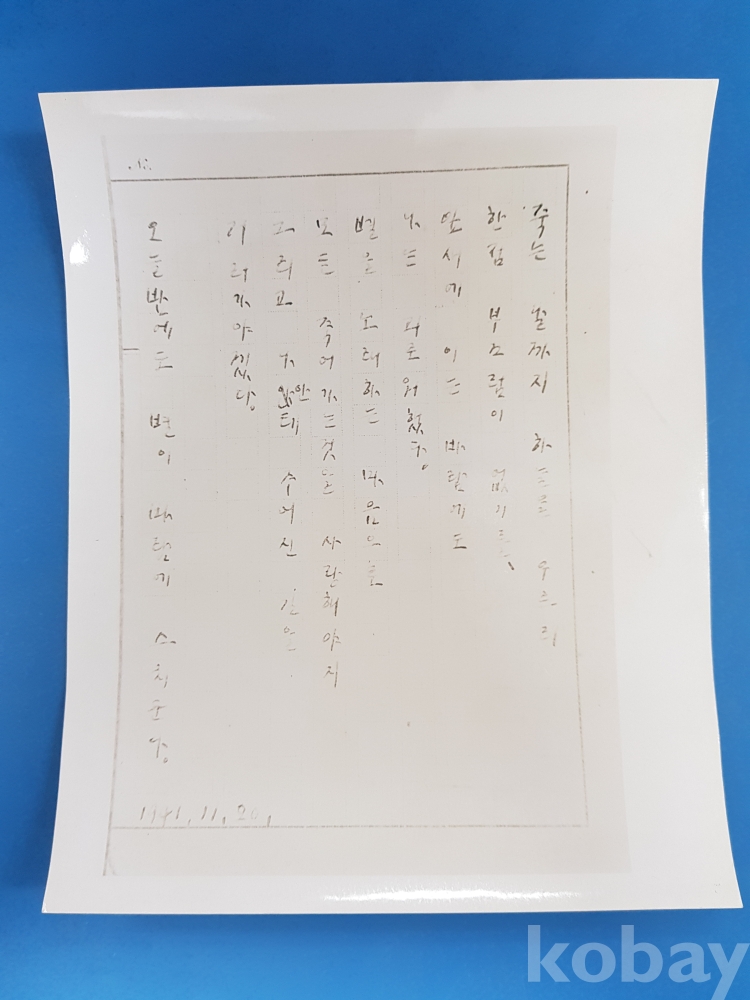 죽는 날까지 하늘을 우르러
한점 부끄럼이 없기를、
잎새에 이는 바람에도
나는 괴로워했다。
별을 노래하는 마음으로
모든 죽어가는것을 사랑해야지
그리고 나안테 주어진 길을
거러가야겠다。
오늘밤에도 별이 바람에 스치운다。
1941.11.20.
kobay